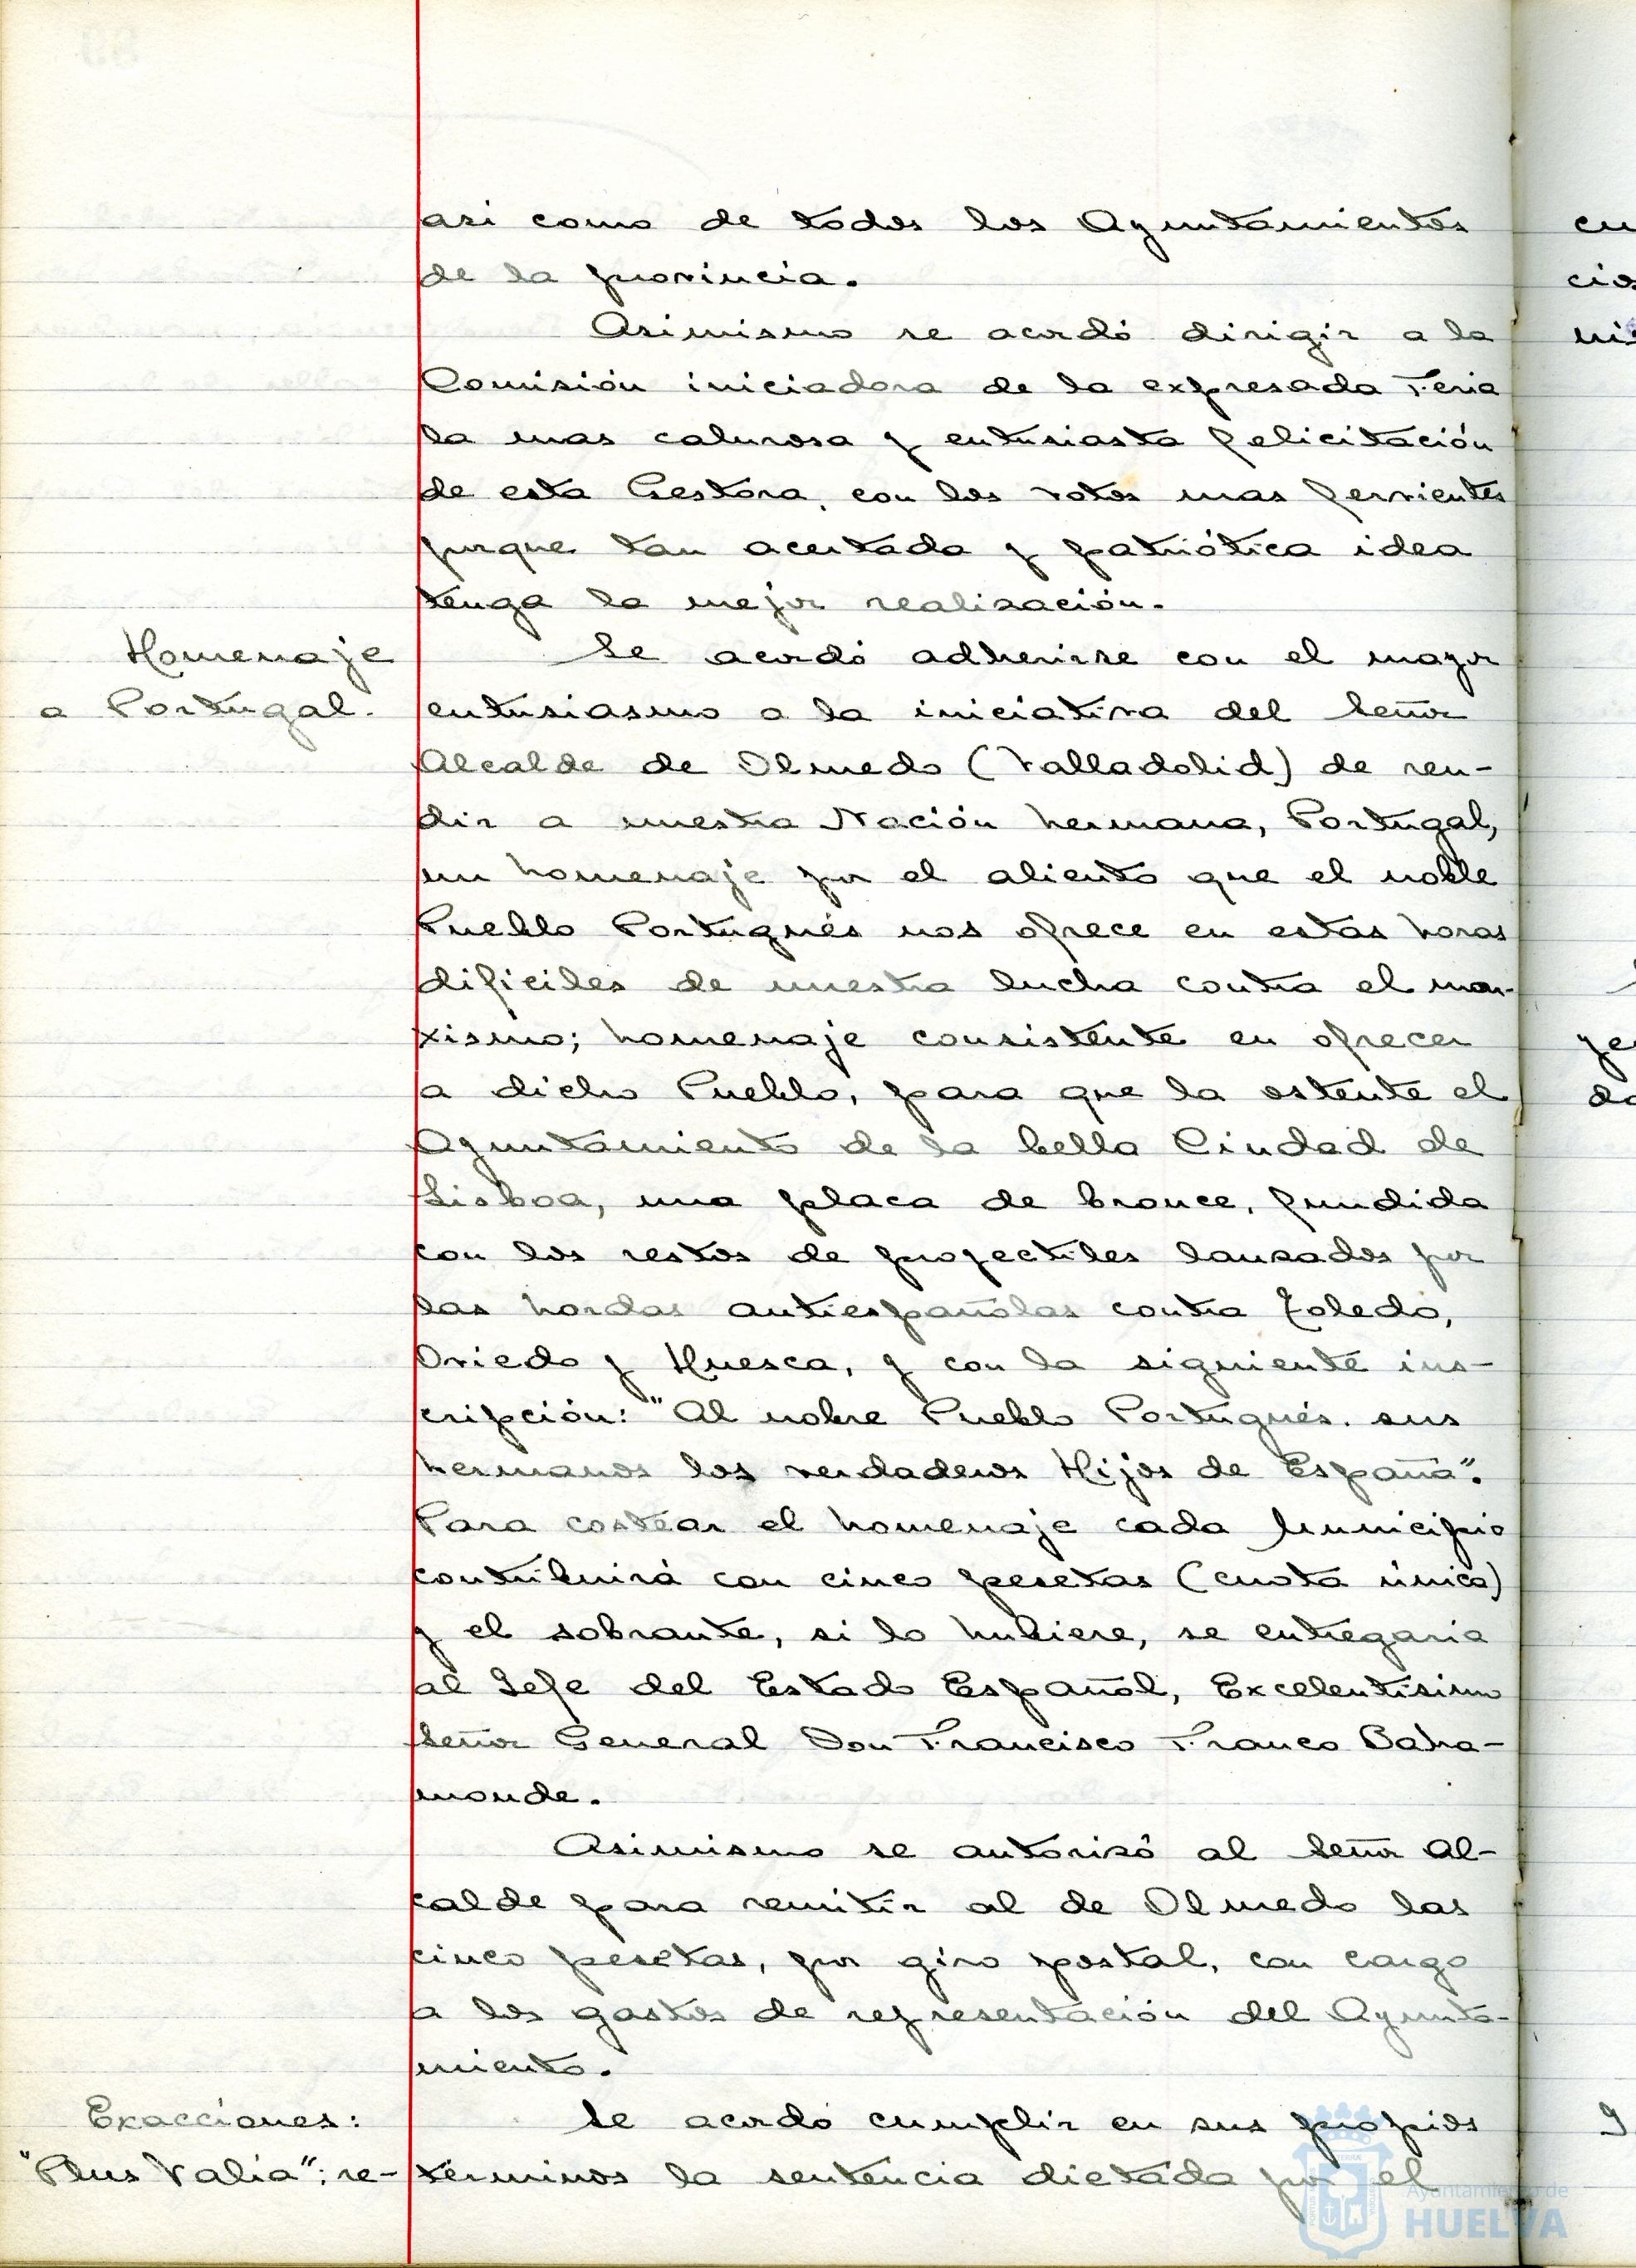 asi como de todos los Ayuntamientos
de la provincia.
Asimismo se acordó dirigir a la
Comisión iniciadora de la expresada Feria
la mas calurosa y entusiasta felicitación
de esta Gestora, con los votos mas fervientes
porque tan acertada y patriótica idea
tenga la mejor realización.
Homenaje
a Portugal.
Se acordó adherirse con el mayor
entusiasmo a la iniciativa del Señor
Alcalde de Olmedo (Valladolid) de ren-
dir a nuestra Nación hermana, Portugal,
un homenaje por el aliento que el noble
Pueblo Portugués nos ofrece en estas horas
dificiles de nuestra lucha contra el mar-
xismo; homenaje consistente en ofrecer
a dicho Pueblo, para que la ostente el
Ayuntamiento de la bella Ciudad de
Lisboa, una placa de bronce, fundida
con los restos de proyectiles lanzados por
las hordas antiespañolas contra Toledo,
Oviedo y Huesca, y con la siguiente ins-
cripción: "Al noble Pueblo Portugués. sus
hermanos los verdaderos Hijos de España".
Para costear el homenaje cada Municipio
contribuirá con cinco pesetas (cuota única)
y el sobrante, si lo hubiere, se entregaria
al Jefe del Estado Español, Excelentísimo
Señor General Don Francisco Franco Baha-
monde.
Asimismo se autorizó al Señor Al-
calde para remitir al de Olmedo las
cinco pesetas, por giro postal, con cargo
a los gastos de representación del Ayunta-
miento.
Exacciones:
"Plus Valia"; re-
Se acordó cumplir en sus propios
términos la sentencia dictada por el
Ayuntamiento de
HUELVA